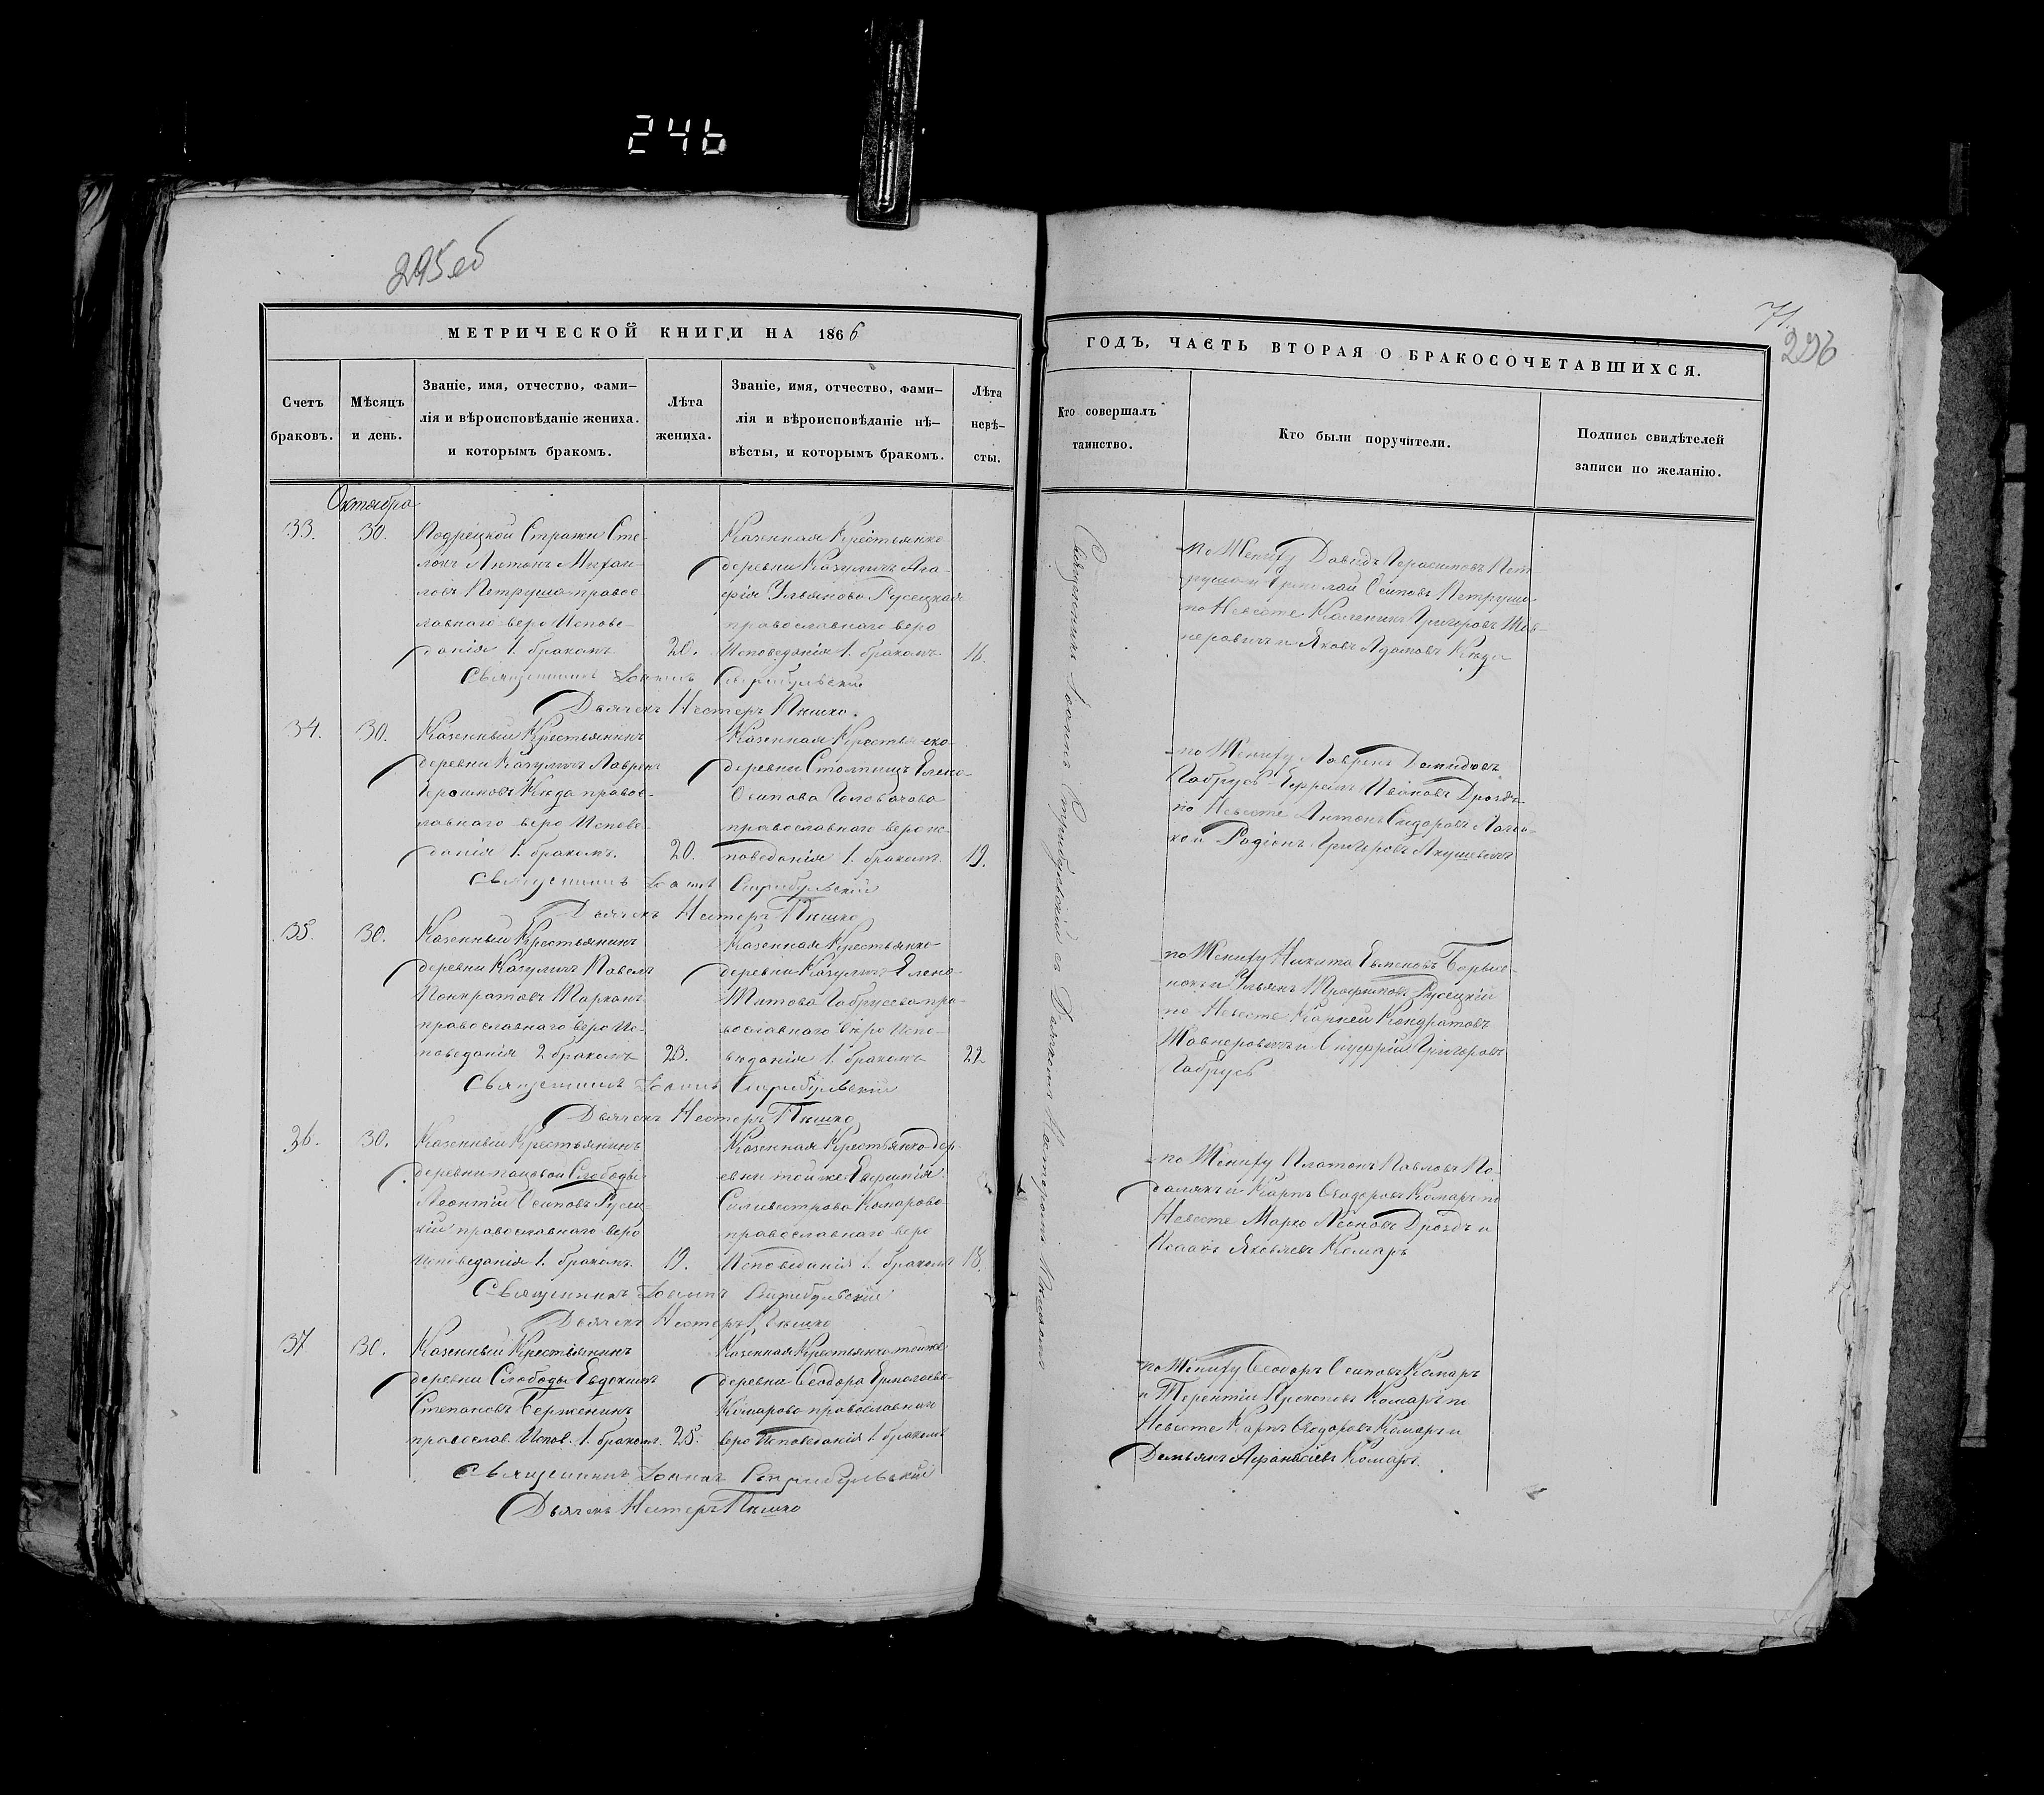 246
295об
МЕТРИЧЕСКОЙ КНИГИ НА 1866
Счетъ
браковъ.
Мѣсяцъ
и день.
Званіе, имя, отчество, фами-
лія и вѣроисповѣданіе жениха.
и которымъ бракомъ.
Лѣта
жениха.
Званіе, имя, отчество, фами-
лія и вѣроисповѣданіе не-
вѣсты, и которымъ бракомъ.
Лѣта
невѣ-
сты.
Октября
33.
30.
Стражи Сте-
Антонъ Михаи-
ловъ Петруша правос-
лавнаго веро Испове-
данія 1. бракомъ
20.
Казенная Крестьянка
деревни Казуличъ Ага-
фія Ульянова Русецкая
православнаго веро
Исповеданія 1. бракомъ.
16.
Священникъ Іоаннъ
Дьячекъ Нестеръ Пышко.
34.
30.
Казенный Крестьянинъ
деревни Казуличъ Лаврен
правос-
лавнаго веро Испове-
данія 1. бракомъ.
20.
Казенная Крестьянка
деревни Столпищъ Елена
Осипова Головачова
православнаго веро ис-
поведанія 1. бракомъ.
19.
Священникъ Іоаннъ
Дьячекъ Нестеръ Пышко
35.
30.
Казенный Крестьянинъ
деревни Казуличъ Павелъ
Понкратовъ
православнаго веро Ис-
поведанія 2 бракомъ
23.
Казенная Крестьянка
деревни Казуличъ Елена
Титова Габрусева пра-
вославнаго веро Испо-
веданія 1. бракомъ
22
Священникъ Іоаннъ
Дьячекъ Нестеръ Пышко
36.
30.
Казенный Крестьянинъ
деревни Слободы
Леонтій Осиповъ Русец-
кій православнаго веро
Исповеданія 1. бракомъ.
19.
Казенная Крестьянка дер-
евни той же
Сильвестрова Комарова
православнаго веро
Исповеданія 1. бракомъ
18.
Священникъ Іоаннъ
Дьячекъ Нестеръ Пышко
37
30.
Казенный Крестьянинъ
деревни Слободы Евдокимъ
Степановъ
православ. Испов. 1. бракомъ.
25.
Казенная Крестьянка той же
деревни Ѳеодора Ермолаева
Комарова православнаго
веро Исповеданія 1. бракомъ
Священникъ Іоаннъ
Дьячекъ Нестеръ Пышко
71.
296
ГОДЪ, ЧАСТЬ ВТОРАЯ О БРАКОСОЧЕТАВШИХСЯ.
Кто совершалъ
таинство.
Кто были поручители.
Подпись свидѣтелей
записи по желанію.
Священникъ Іоаннъ съ Дьячкомъ Несторомъ
по Жениху Давидъ Герасимовъ Пет-
руша и Ермолай Осиповъ Петруша
по Невесте Григоровъ
и Яковъ Адамовъ
по Жениху Лавренъ Демидовъ
Габрусь Иванов Дроздъ
по Невесте Антонъ Сидоровъ
Родіонъ Григоровъ Якушевичъ
по Жениху Никита
и Ульянъ Трофимовъ Русецкій
по Невесте Карней Кондратовъ
и Григоровъ
Габрусь
по Жениху Платонъ Павловъ
и Карпъ Ѳеодоровъ Комаръ по
Невесте Марко Леоновъ Дроздъ и
Исаакъ Яковлевъ Комаръ
по Жениху Ѳеодоръ Осиповъ Комаръ
и Терентій Прокоповъ Комаръ по
Невесте Карпъ Ѳеодоровъ Комаръ и
Демьянъ Афанасіевъ Комаръ.